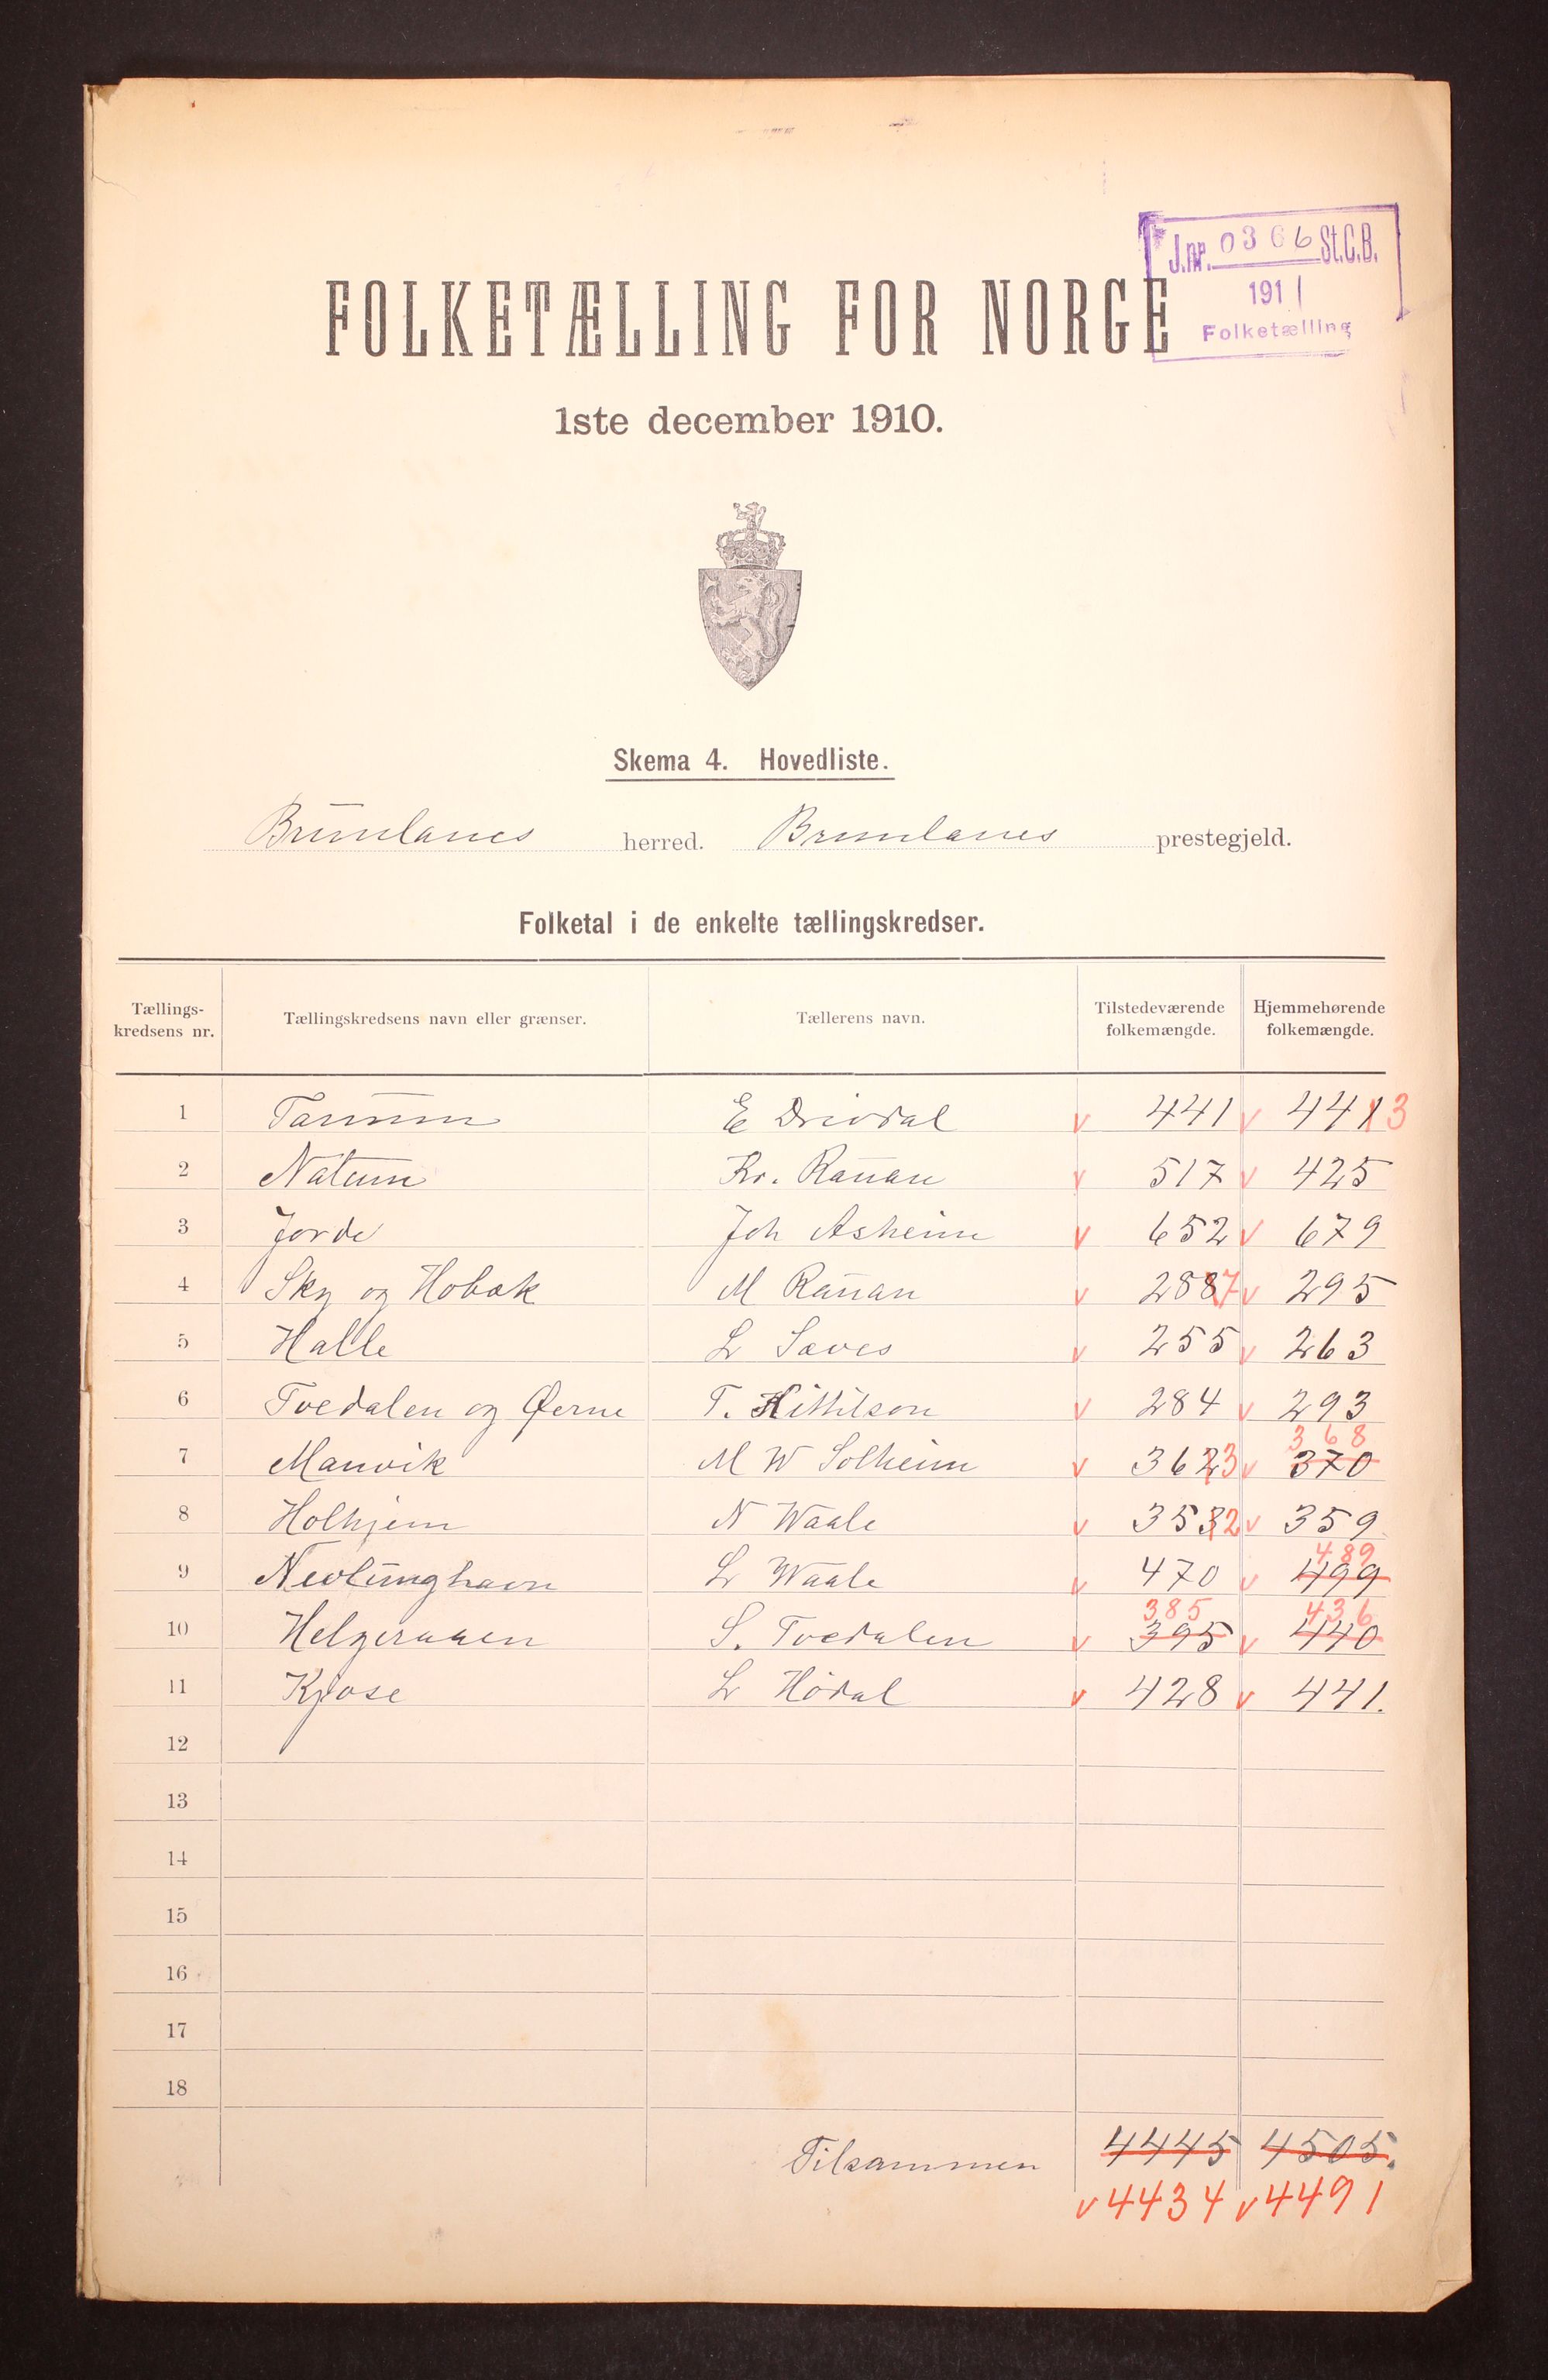 J.nr. 0366 St.C.B.
1911
Folketælling
FOLKETÆLLING FOR NORGE
1ste december 1910.
Skema 4. Hovedliste.
Brunlanes herred. Brunlanes prestegjeld.
Folketal i de enkelte tællingskredser.
Tællings-kredsens nr. Tællingskredsens navn eller grænser. Tællerens navn. Tilstedeværende folkemængde. Hjemmehørende folkemængde.
1 Tanum E Drivdal v 441 v 441 3
2 Natum Kr. Rauan v 517 v 425
3 Jorde Joh Asheim v 652 v 679
4 Sky og Hobæk M Rauan v 288 7 v 295
5 Halle L Saves v 255 v 263
6 Tvedalen og Øerne T. Kittilson v 284 v 293
368
7 Manvik M W Solheim v 362 3 v 370
8 Holhjem N Waale v 353 2 v 359
489
9 Nevlunghavn L Waale v 470 v 499
385 436
10 Helgeraaen S. Tvedalen v 395 v 440
11 Kjose L Hödal v 428 v 441.
12
13
14
15
16
17
18
Tilsammen 4445 4505.
v 4434 v 4491